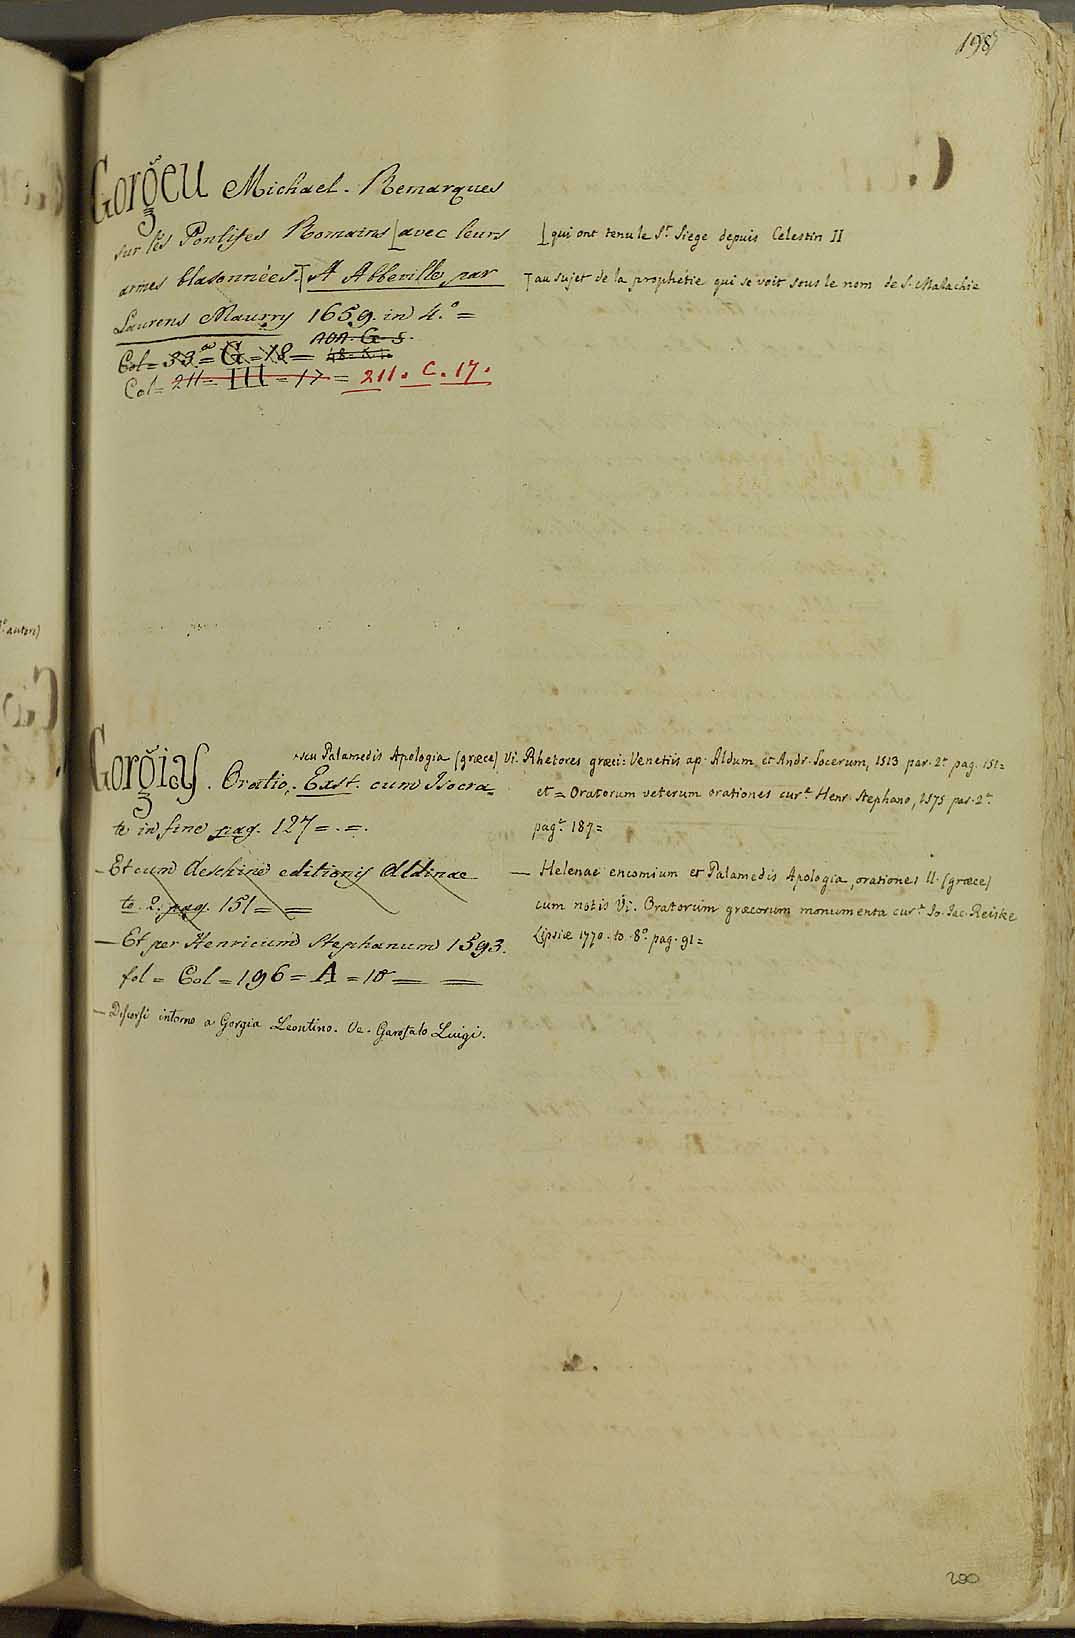 198
Gorgeu Michael. Remarques
sur les Pontifes Romains avec leurs
armes blasonnées. A Abbeville, par
Laurens Maurry 1659. in 4.° =
Col = 33 = G = 18 =
Col = 211 = III = 17 = 211. C. 17.
qui ont tenu le S.t Siege depuis Celestin II
au sujet de la prophetie qui se voit sous le nom de S. Malachie
Gorgias. Oratio. Exst. cum Isocra=
seu Palamedis Apologia (græce)
te in fine pag. 127 = . =.
— Et cum Aeschine editionis Aldinae
to. 2. pag. 151 = =
— Et per Henricum Stephanum 1593.
fol = Col = 196 = A = 18 = =
— Discorsi intorno a Gorgia Leontino. Ve. Garofalo Luigi.
Vi. Rhetores græci: Venetiis ap. Aldum et Andr. Socerum, 1513 par. 2.a pag. 151=
et = Oratorum veterum orationes cur.e Henr. Stephano, 1575 par. 2.a
pag.a 187=
— Helenae encomium et Palamedis Apologia, orationes II. (græce)
cum notis Vi. Oratorum græcorum monumenta cur.e Io. Iac. Reiske
Lipsiæ 1770. to. 8.° pag. 91=
200